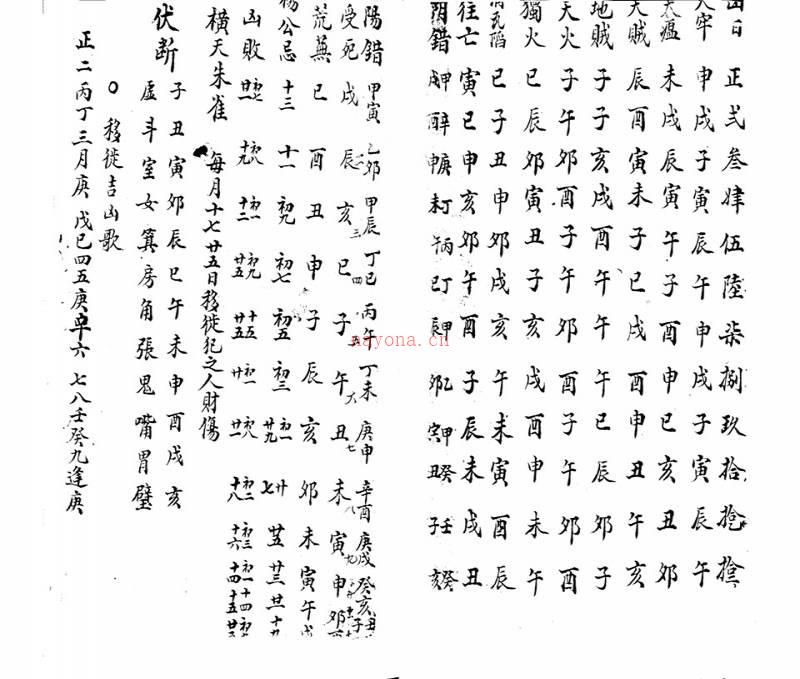 正弍叁肆伍陸柒捌玖拾
牢 申戌子寅辰午申戌子寅辰午
瘟 未戌辰寅午子酉申巳亥丑卯
天賊 辰酉寅未子巳戌酉申丑午亥
地賊 子子亥戌酉午午午巳辰卯子
天火 子午卯酉子午卯酉子午卯酉
獨火 巳辰卯寅丑子亥戌酉申未午
瓦陷 巳子丑申卯戌亥午未寅酉辰
往亡 寅巳申亥卯午酉子辰未戌丑
陰錯
陽錯 甲寅 乙卯 甲辰 丁巳 丙午 丁未 庚申 辛酉 庚戌 癸亥
受死 戌辰亥巳子午丑未寅申卯
荒蕪 巳酉丑申子辰亥卯未寅午戌
楊公忌 十三 十一 初九 初七 初五 初三 初一 廿九 廿七 廿五 廿三 廿一 十九
凶敗 初七 廿一
横天朱雀 每月十七廿五日移徙犯之人財傷
伏断 子丑寅卯辰巳午未申酉戌亥
虚斗室女箕房角張鬼嘴胃璧
○移徙吉凶歌
正二丙丁三月庚 戊巳四五庚辛六 七八壬癸九逢庚
nayona.cn